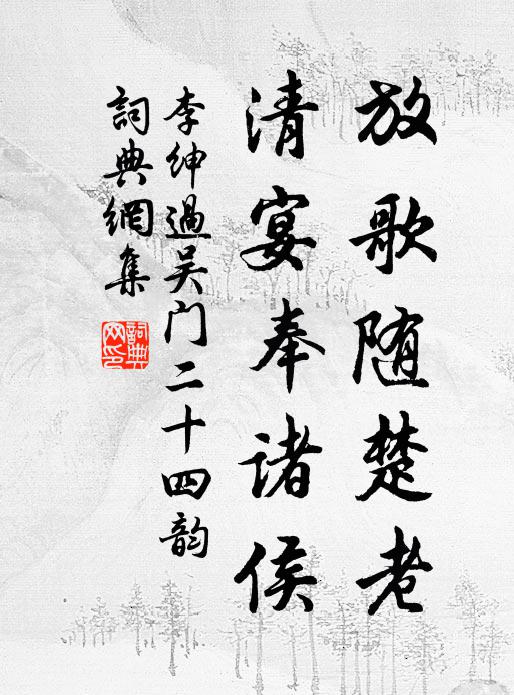 放歌随楚老
清宴奉诸侯
李绅過吴门二十四韵
詞典網集
詞典网印